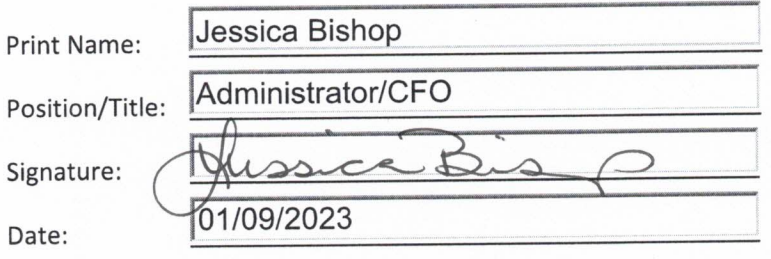 Print Name: Jessica Bishop
Position/Title: Administrator/CFO
Signature: Jessica Bishop
Date: 01/09/2023